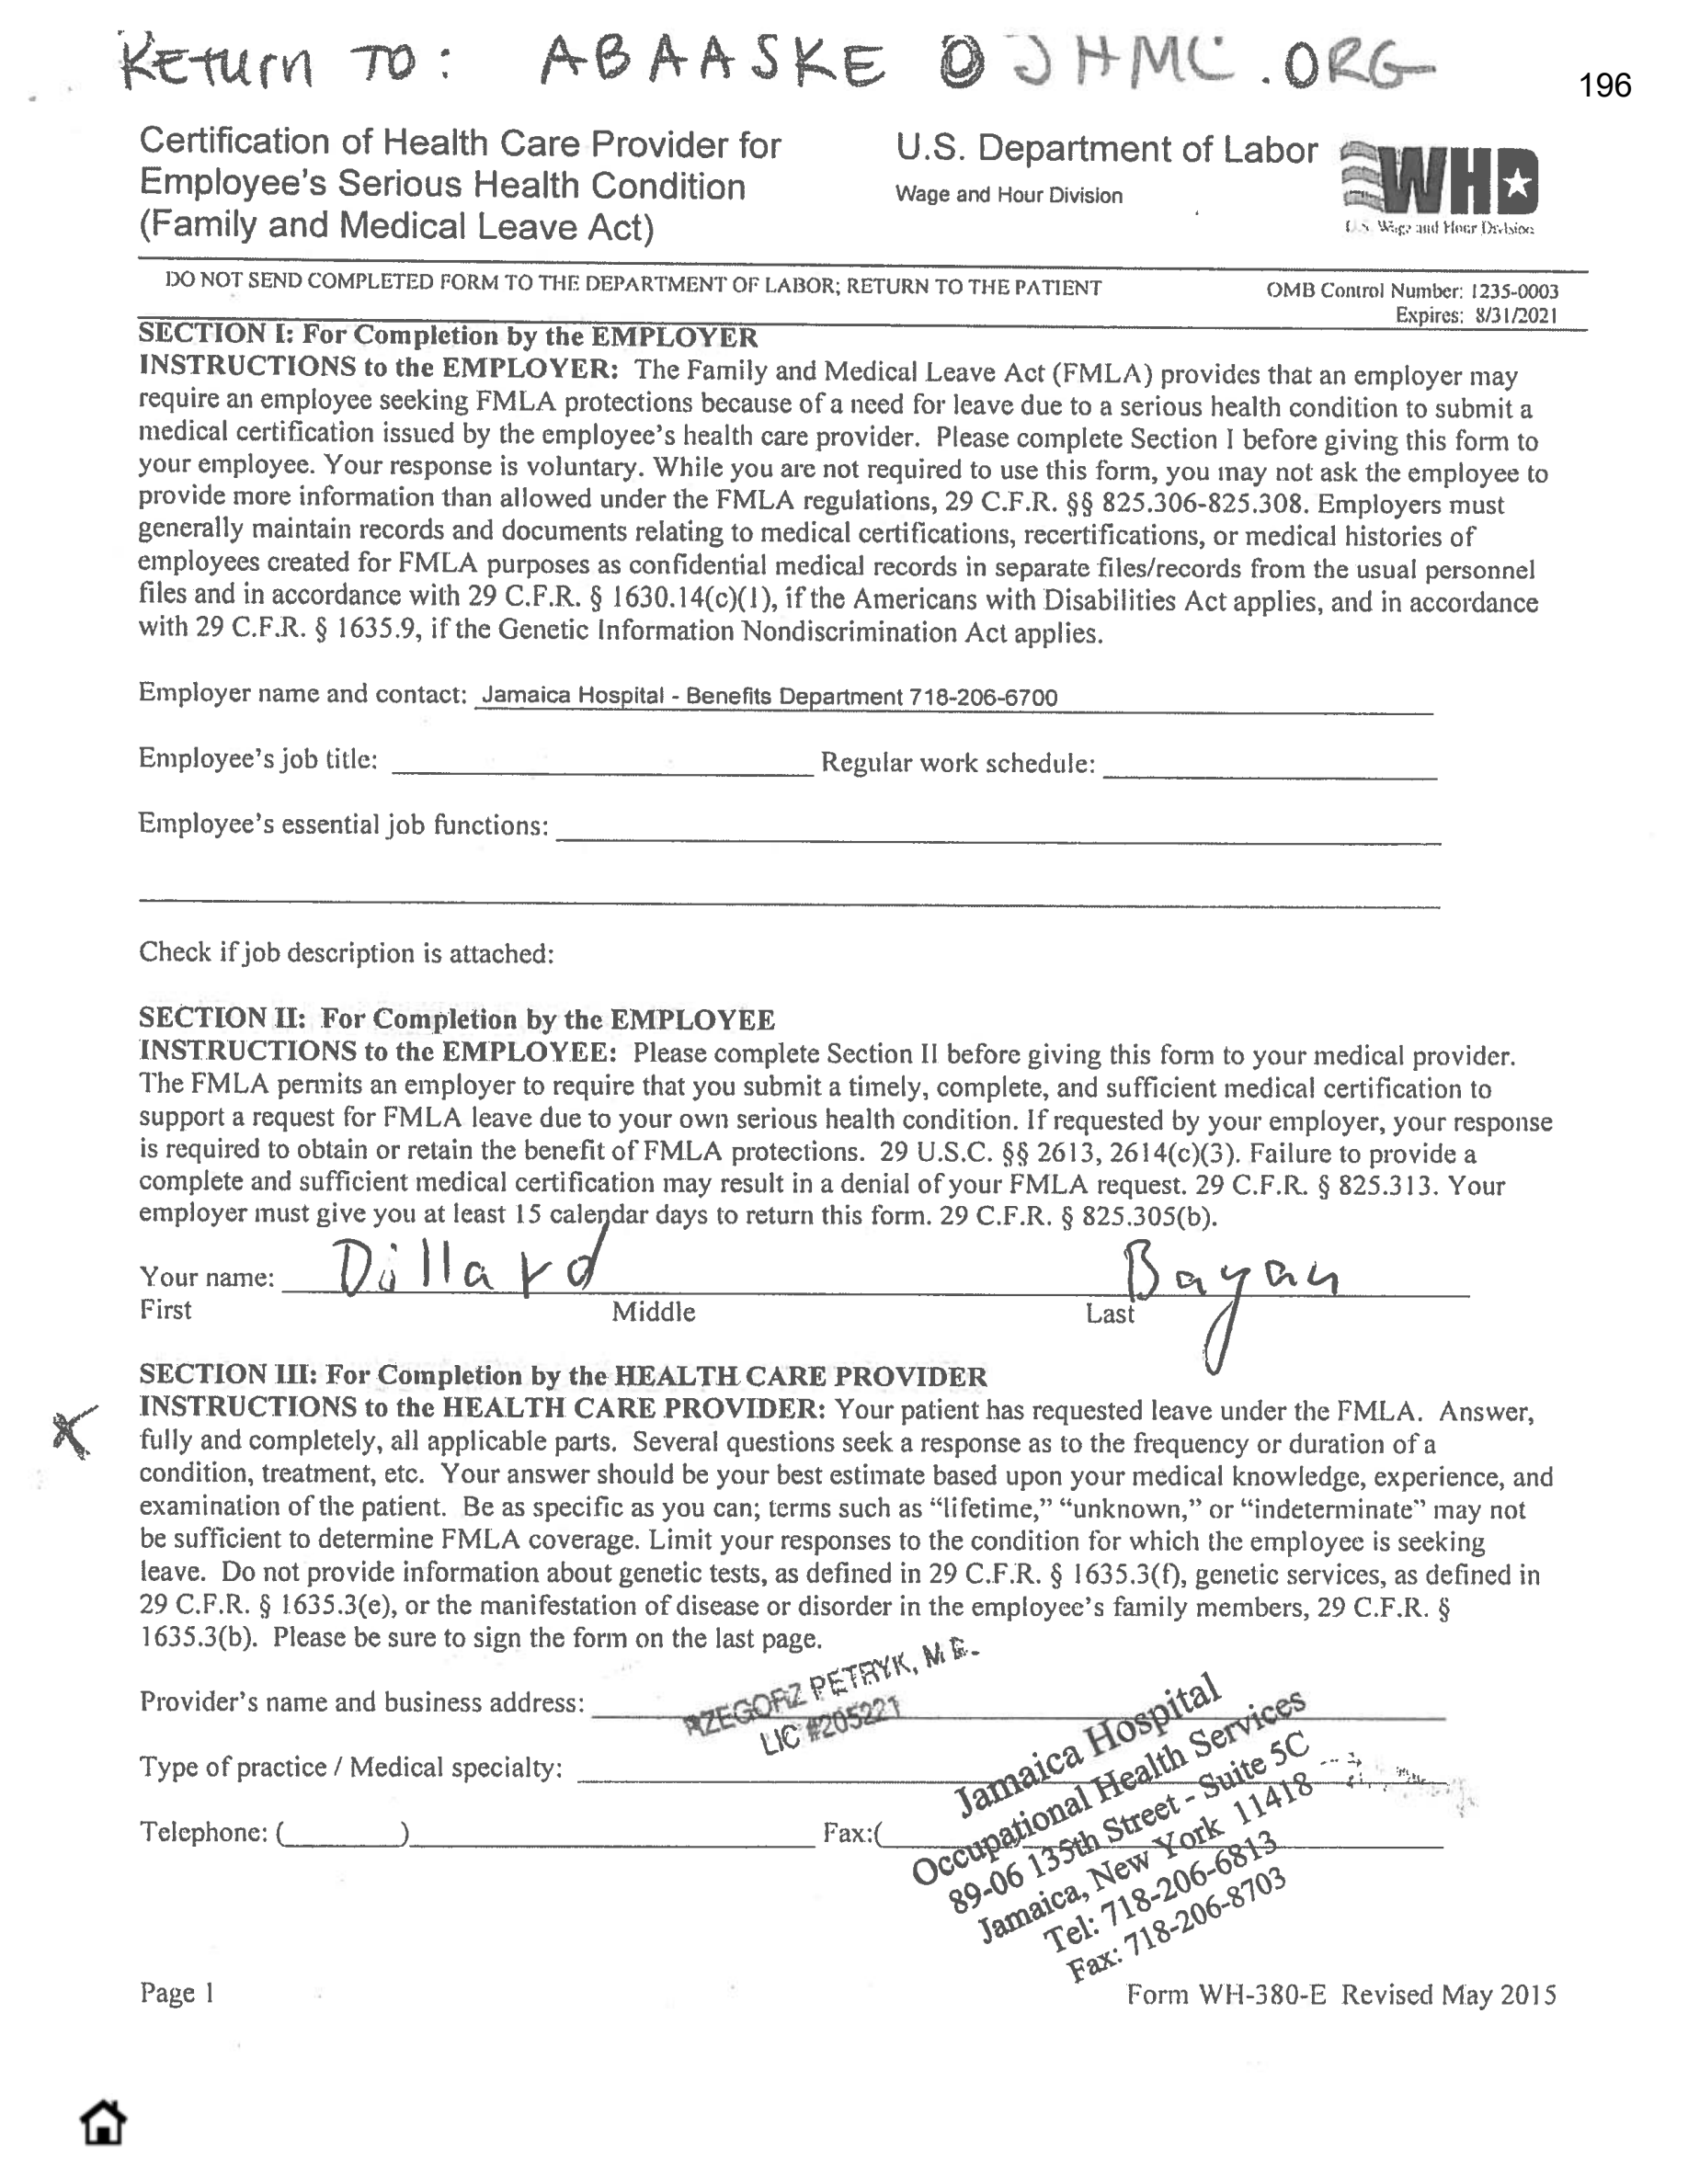 Return TO: ABAASKE @ JHMC.ORG
196
Certification of Health Care Provider for
Employee's Serious Health Condition
(Family and Medical Leave Act)
U.S. Department of Labor
Wage and Hour Division
WHD
U.S. Wage and Hour Division
DO NOT SEND COMPLETED FORM TO THE DEPARTMENT OF LABOR; RETURN TO THE PATIENT
OMB Control Number: 1235-0003
Expires: 8/31/2021
SECTION I: For Completion by the EMPLOYER
INSTRUCTIONS to the EMPLOYER: The Family and Medical Leave Act (FMLA) provides that an employer may
require an employee seeking FMLA protections because of a need for leave due to a serious health condition to submit a
medical certification issued by the employee's health care provider. Please complete Section I before giving this form to
your employee. Your response is voluntary. While you are not required to use this form, you may not ask the employee to
provide more information than allowed under the FMLA regulations, 29 C.F.R. §§ 825.306-825.308. Employers must
generally maintain records and documents relating to medical certifications, recertifications, or medical histories of
employees created for FMLA purposes as confidential medical records in separate files/records from the usual personnel
files and in accordance with 29 C.F.R. § 1630.14(c)(1), if the Americans with Disabilities Act applies, and in accordance
with 29 C.F.R. § 1635.9, if the Genetic Information Nondiscrimination Act applies.
Employer name and contact: Jamaica Hospital - Benefits Department 718-206-6700
Employee's job title: Regular work schedule:
Employee's essential job functions:
Check if job description is attached:
SECTION II: For Completion by the EMPLOYEE
INSTRUCTIONS to the EMPLOYEE: Please complete Section II before giving this form to your medical provider.
The FMLA permits an employer to require that you submit a timely, complete, and sufficient medical certification to
support a request for FMLA leave due to your own serious health condition. If requested by your employer, your response
is required to obtain or retain the benefit of FMLA protections. 29 U.S.C. §§ 2613, 2614(c)(3). Failure to provide a
complete and sufficient medical certification may result in a denial of your FMLA request. 29 C.F.R. § 825.313. Your
employer must give you at least 15 calendar days to return this form. 29 C.F.R. § 825.305(b).
Your name: Dillard Bayan
First Middle Last
SECTION III: For Completion by the HEALTH CARE PROVIDER
INSTRUCTIONS to the HEALTH CARE PROVIDER: Your patient has requested leave under the FMLA. Answer,
fully and completely, all applicable parts. Several questions seek a response as to the frequency or duration of a
condition, treatment, etc. Your answer should be your best estimate based upon your medical knowledge, experience, and
examination of the patient. Be as specific as you can; terms such as “lifetime,” “unknown,” or “indeterminate” may not
be sufficient to determine FMLA coverage. Limit your responses to the condition for which the employee is seeking
leave. Do not provide information about genetic tests, as defined in 29 C.F.R. § 1635.3(f), genetic services, as defined in
29 C.F.R. § 1635.3(e), or the manifestation of disease or disorder in the employee's family members, 29 C.F.R. §
1635.3(b). Please be sure to sign the form on the last page.
Provider's name and business address: RZEGORZ PETRYK, M.D.
LIC #205221
Type of practice / Medical specialty:
Telephone: ( ) Fax:(
Jamaica Hospital
Occupational Health Services
89-06 135th Street - Suite 5C
Jamaica, New York 11418
Tel: 718-206-6813
Fax: 718-206-8703
Page 1
Form WH-380-E Revised May 2015